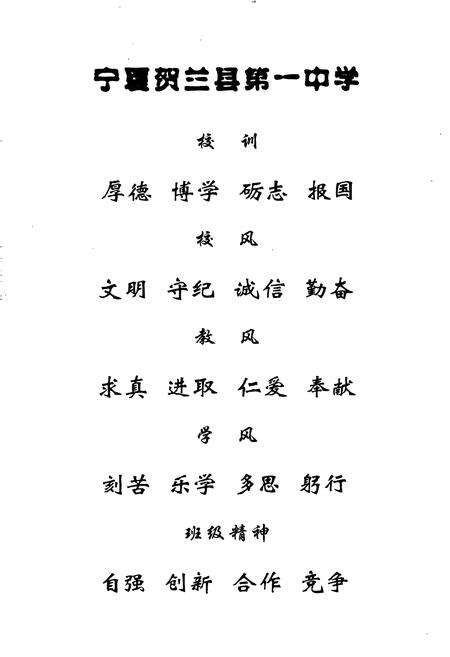 宁夏贺兰县第一中学
校 训
厚德 博学 砺志 报国
校 风
文明 守纪 诚信 勤奋
教 风
求真 进取 仁爱 奉献
学 风
刻苦 乐学 多思 躬行
班级精神
自强 创新 合作 竞争